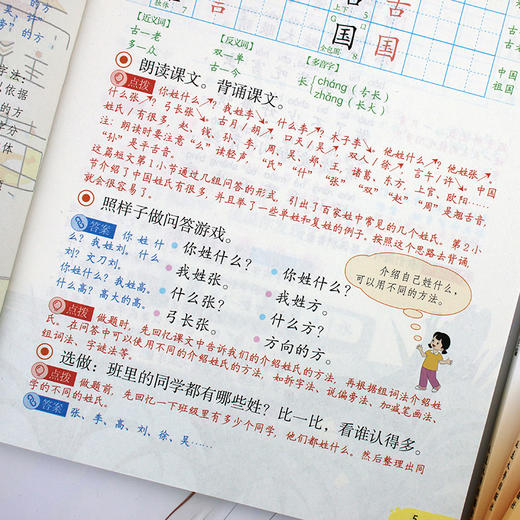 [近义词]
古—老
多—众
[反义词]
双—单
古—今
[多音字]
长 cháng (专长)
zhǎng (长大)
独体
上下
全包围
舌
国 国
中国
祖国
朗读课文。背诵课文。
点拨 你姓什么? 我姓李。什么李? 木子李。他姓什么? 他姓张。
什么张? 弓长张。古月/胡, 口天/吴, 双人/徐, 言午/许。中国
姓氏/有很多, 赵、钱、孙、李, 周、吴、郑、王, 诸葛、东方, 上官、欧阳……
注: 朗读时要注意“么”读轻声, “氏”“什”“张”“双”“赵”“周”是翘舌音,
“孙”是平舌音。
这篇短文第1小节通过几组问答的形式, 引出了百家姓中常见的几个姓氏。第2小
节介绍了中国姓氏有很多, 并且举了一些单姓和复姓的例子。按照这个思路去背诵,
就会很容易了。
照样子做问答游戏。
答案 你姓什
么? 我姓刘。什么
刘? 文刀刘。
你姓什么? 我姓高。
什么高? 高大的高。
你姓什么?
我姓张。
什么张?
弓长张。
你姓什么?
我姓方。
什么方?
方向的方。
介绍自己姓什么,
可以用不同的方法。
点拨 做题时, 先回忆课文中告诉我们的介绍姓氏的方法, 再根据组词法介绍姓
氏。在问答中可以使用不同的介绍姓氏的方法, 如拆字法、说偏旁法、加减笔画法、
组词法、字谜法等。
选做: 班里的同学都有哪些姓? 比一比, 看谁认得多。
点拨 做题前, 先回忆一下班级里有多少个同学, 他们都姓什么。然后整理出同
学的不同的姓氏。
答案 张、李、高、刘、徐、吴……
5